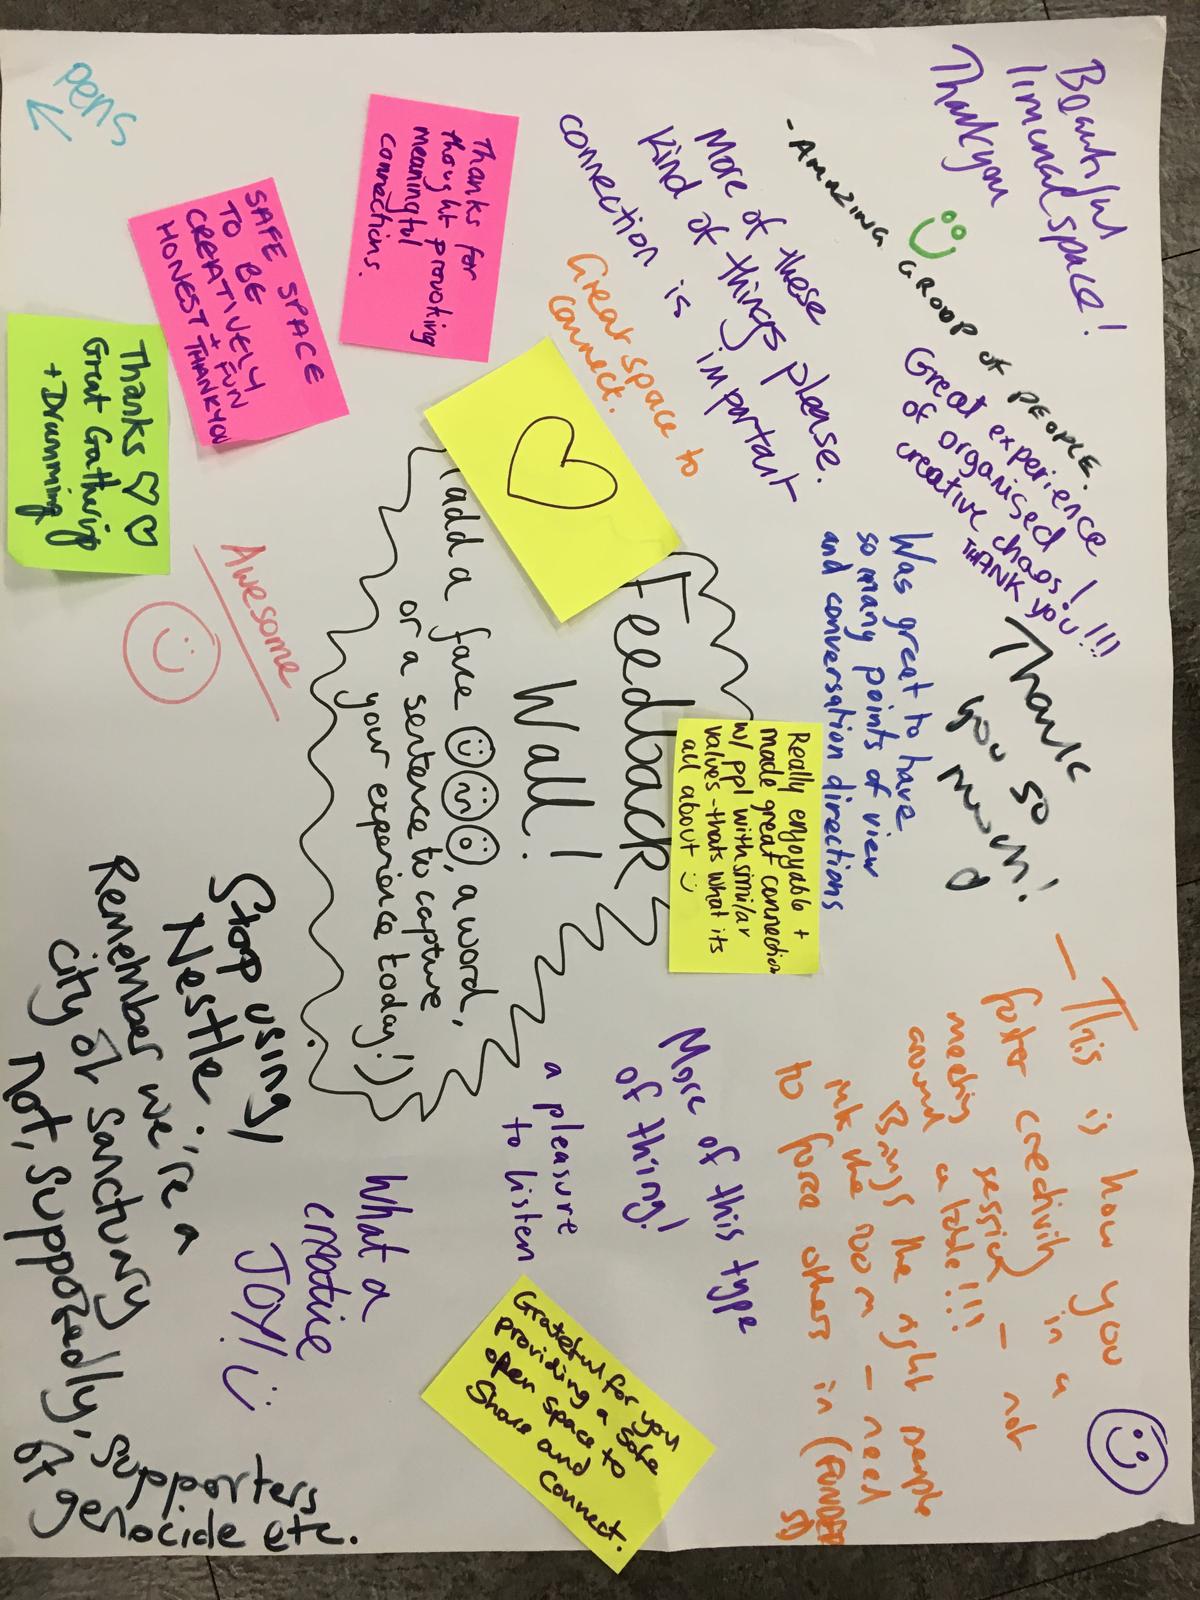 Beautiful
liminal space!
Thank you
- AMAZING GROUP OF PEOPLE.
More of these
kind of things please.
connection is important
Great space to
connect.
Great experience
of organised
creative chaos!
THANK YOU!!!
Thank
you so
much!
Was great to have
so many points of view
and conversation directions
Really enjoyable +
made great connection
w/ ppl with similar
values - thats what its
all about
- This is how you
foster creativity in a
meeting session - not
around a table!!!
Brings the right people
into the room - need
to force others in (FUNDERS)
Thanks for
thought provoking
meaningful
connections.
SAFE SPACE
TO BE
CREATIVELY
+ FUN
HONEST THANKYOU
Thanks
Great Gathering
+ Drumming
pens
Awesome
Feedback
Wall!
(add a face, a word,
or a sentence to capture
your experience today!)
More of this type
of thing!
a pleasure
to listen
What a
creative
JOY!
Grateful for you
providing a safe
open space to
Share and
Connect.
Stop using
Nestle!
Remember we're a
city of Sanctuary
Not, supposedly, supporters
of genocide etc.